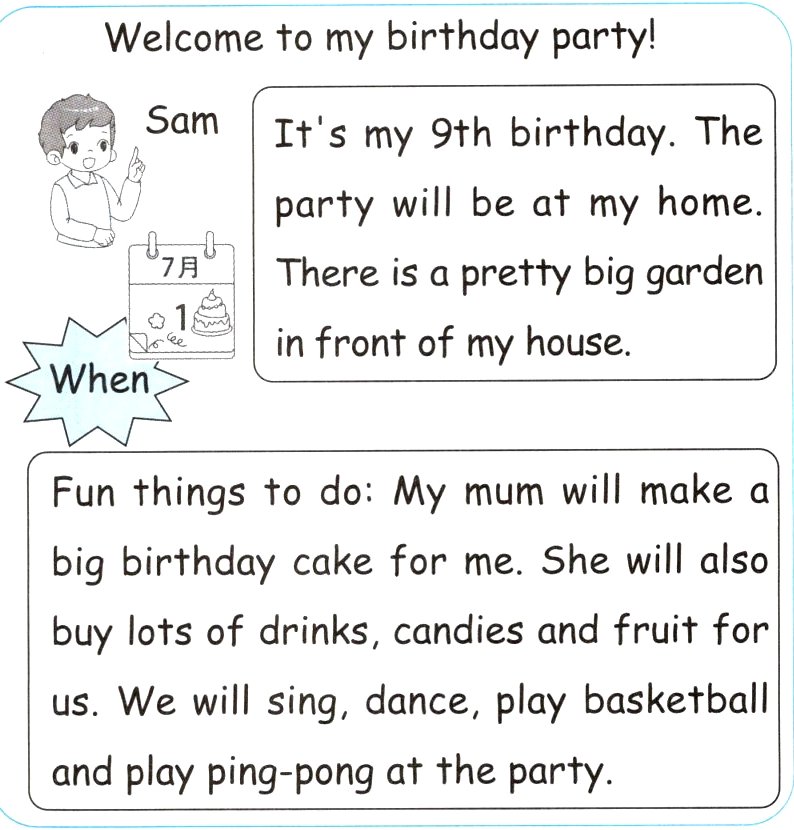 Welcome to my birthday party!
Sam
It's my 9th birthday. The
party will be at my home.
There is a pretty big garden
in front of my house.
7月
1
When
Fun things to do: My mum will make a
big birthday cake for me. She will also
buy lots of drinks, candies and fruit for
us. We will sing, dance, play basketball
and play ping-pong at the party.